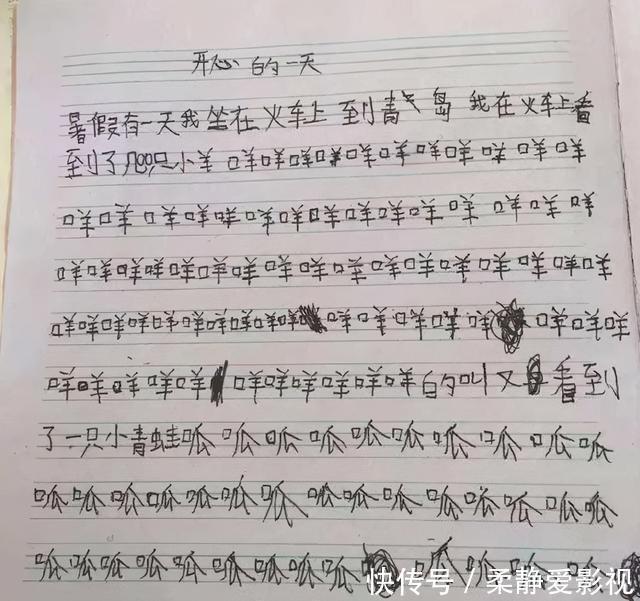 开心的一天
暑假有一天我坐在火车上到青岛我在火车上看
到了几只小羊咩咩咩咩咩咩咩咩咩咩咩
咩咩咩咩咩咩咩咩咩咩咩咩咩咩咩
咩咩咩咩咩咩咩咩咩咩咩咩咩咩咩咩咩
咩咩咩咩咩咩咩咩咩咩咩咩咩咩咩咩咩咩
咩咩咩咩咩咩咩咩咩咩咩的叫又看到
了一只小青蛙呱呱呱呱呱呱呱呱呱呱
呱呱呱呱呱呱呱呱呱呱呱呱呱呱呱
呱呱呱呱呱呱呱呱呱呱呱呱呱呱
快传号/柔静爱影视